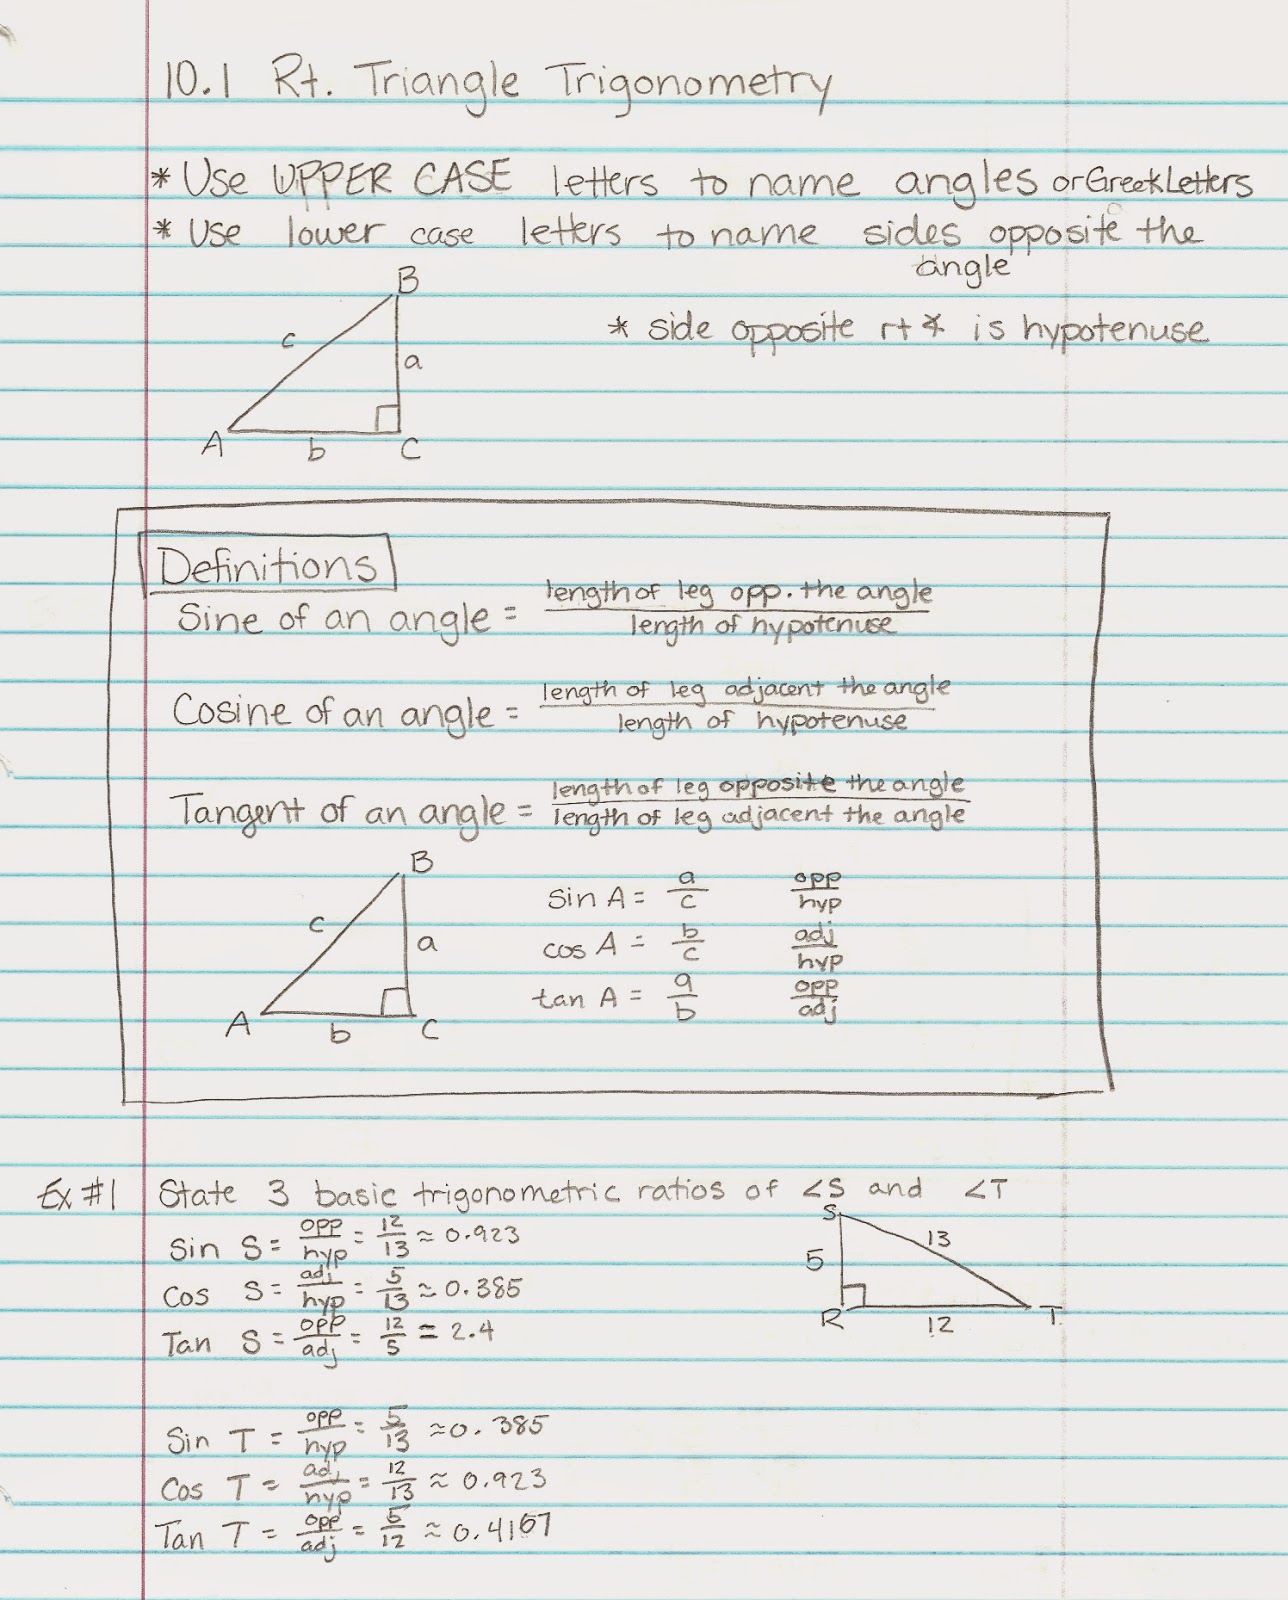 10.1 Rt. Triangle Trigonometry
* Use UPPER CASE letters to name angles or Greek Letters
* Use lower case letters to name sides opposite the
angle
B
c
a
A
b
C
* side opposite rt ∡ is hypotenuse
Definitions
Sine of an angle = length of leg opp. the angle / length of hypotenuse
Cosine of an angle = length of leg adjacent the angle / length of hypotenuse
Tangent of an angle = length of leg opposite the angle / length of leg adjacent the angle
B
c
a
A
b
C
sin A = a/c opp/hyp
cos A = b/c adj/hyp
tan A = a/b opp/adj
Ex #1 State 3 basic trigonometric ratios of ∠S and ∠T
Sin S = opp/hyp = 12/13 ≈ 0.923
Cos S = adj/hyp = 5/13 ≈ 0.385
Tan S = opp/adj = 12/5 = 2.4
S
13
5
R
12
T
Sin T = opp/hyp = 5/13 ≈ 0.385
Cos T = adj/hyp = 12/13 ≈ 0.923
Tan T = opp/adj = 5/12 ≈ 0.4167